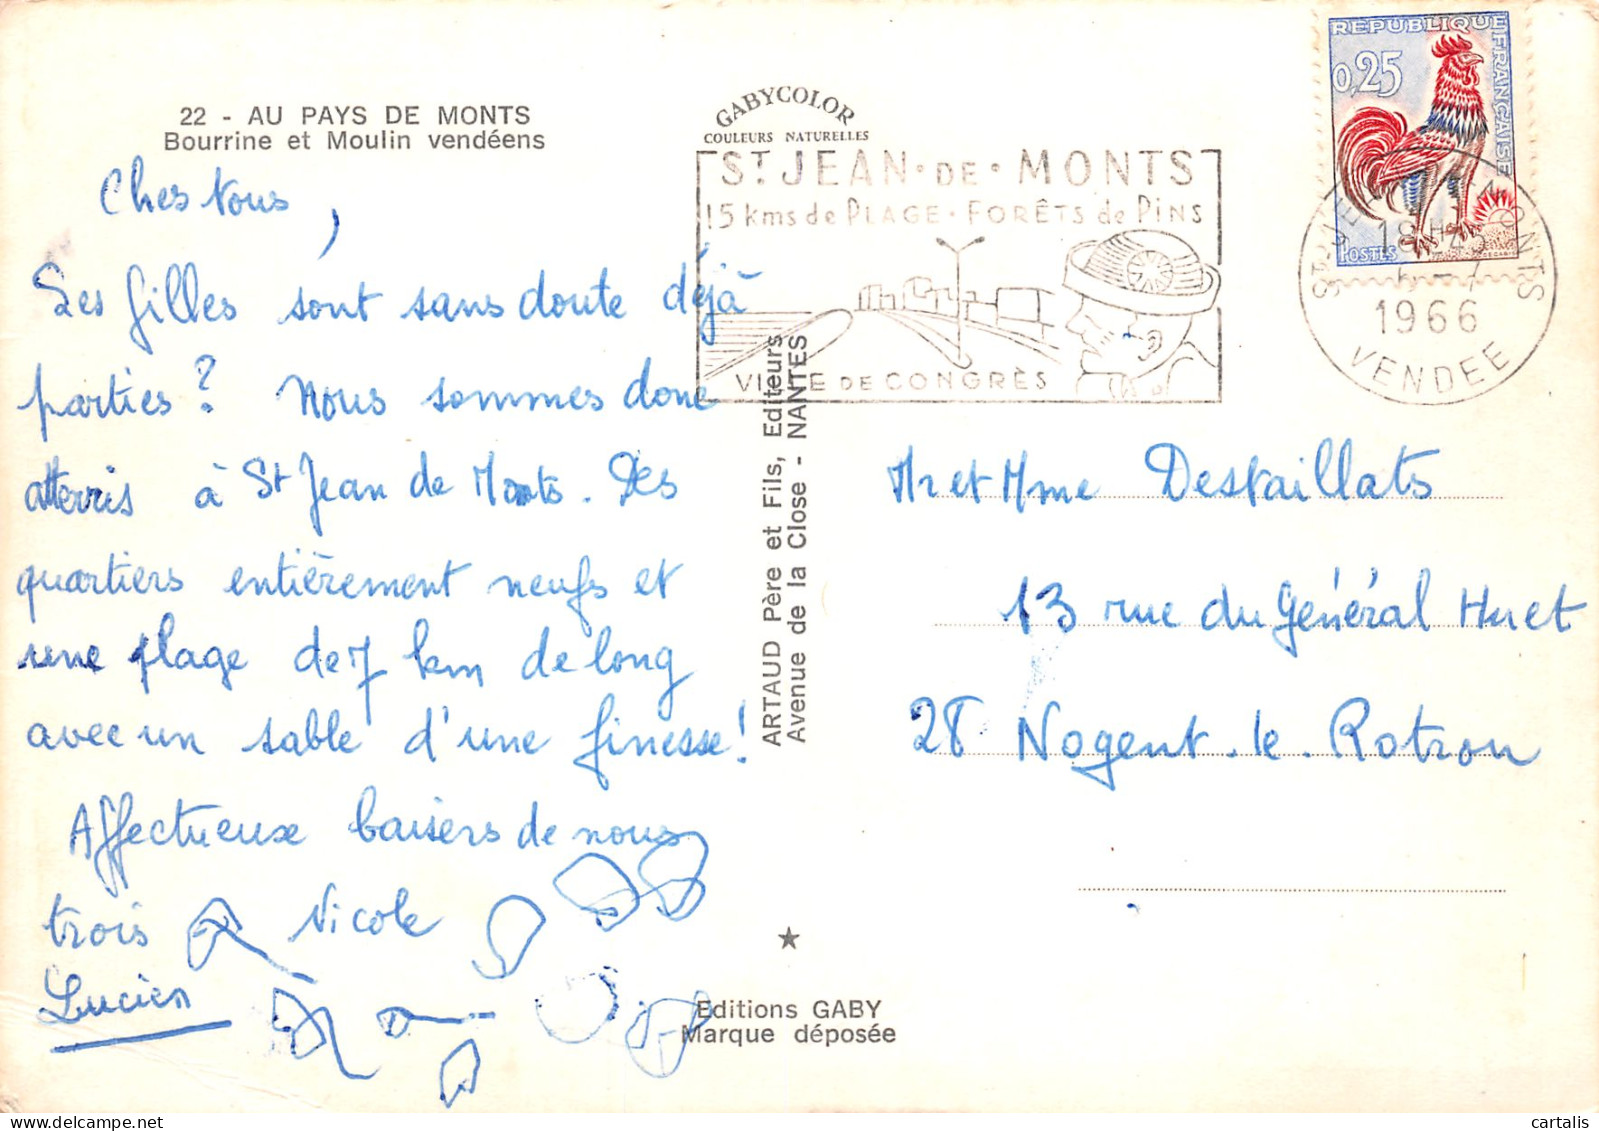 22 - AU PAYS DE MONTS
Bourrine et Moulin vendéens
GABYCOLOR
COULEURS NATURELLES
ST JEAN • DE • MONTS
15 kms de PLAGE • FORÊTS de PINS
VILLE DE CONGRÈS
REPUBLIQUE FRANÇAISE
0,25
POSTES
ST-JEAN-DE-MONTS
18H45
1966
VENDEE
Ches Vous,
Les Gilles sont sans doute déjà
parties ? Nous sommes donc
atterris à St Jean de Monts. Des
quartiers entièrement neufs et
une plage de 7 km de long
avec un sable d'une finesse !
Affectueux baisers de nous
trois Nicole
Lucien
ARTAUD Père et Fils, Editeurs
Avenue de la Close - NANTES
Mr et Mme Destaillats
13 rue du Général Huet
28 Nogent-le-Rotrou
Editions GABY
Marque déposée
cartalis